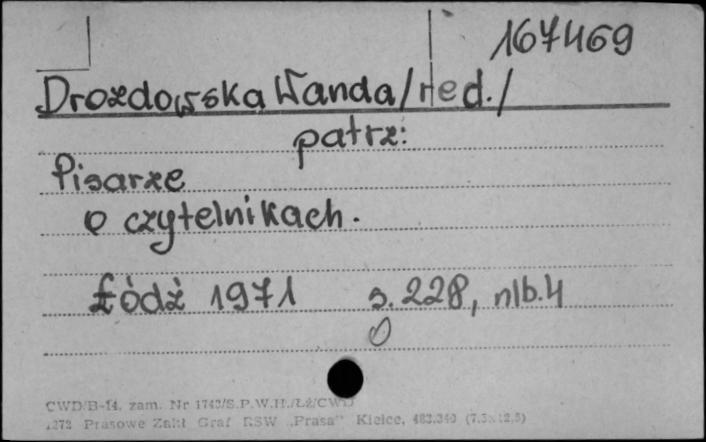 167469
Drozdowska Wanda/red./
patrz:
Pisarze
o czytelnikach.
Łódź 1971 s. 228, nlb. 4
CWD/B-14. zam. Nr 1743/S.P.W.H./Łź/CWD
Prasowe Zakł Graf RSW „Prasa" Kielce.